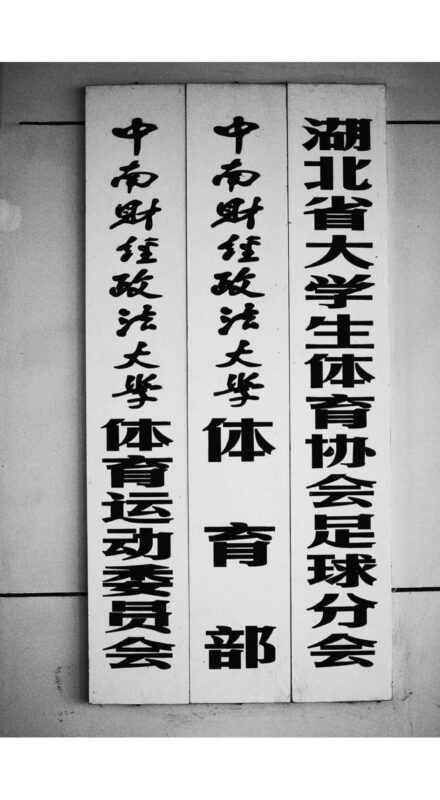 湖北省大学生体育协会足球分会
中南财经政法大学体育部
中南财经政法大学体育运动委员会